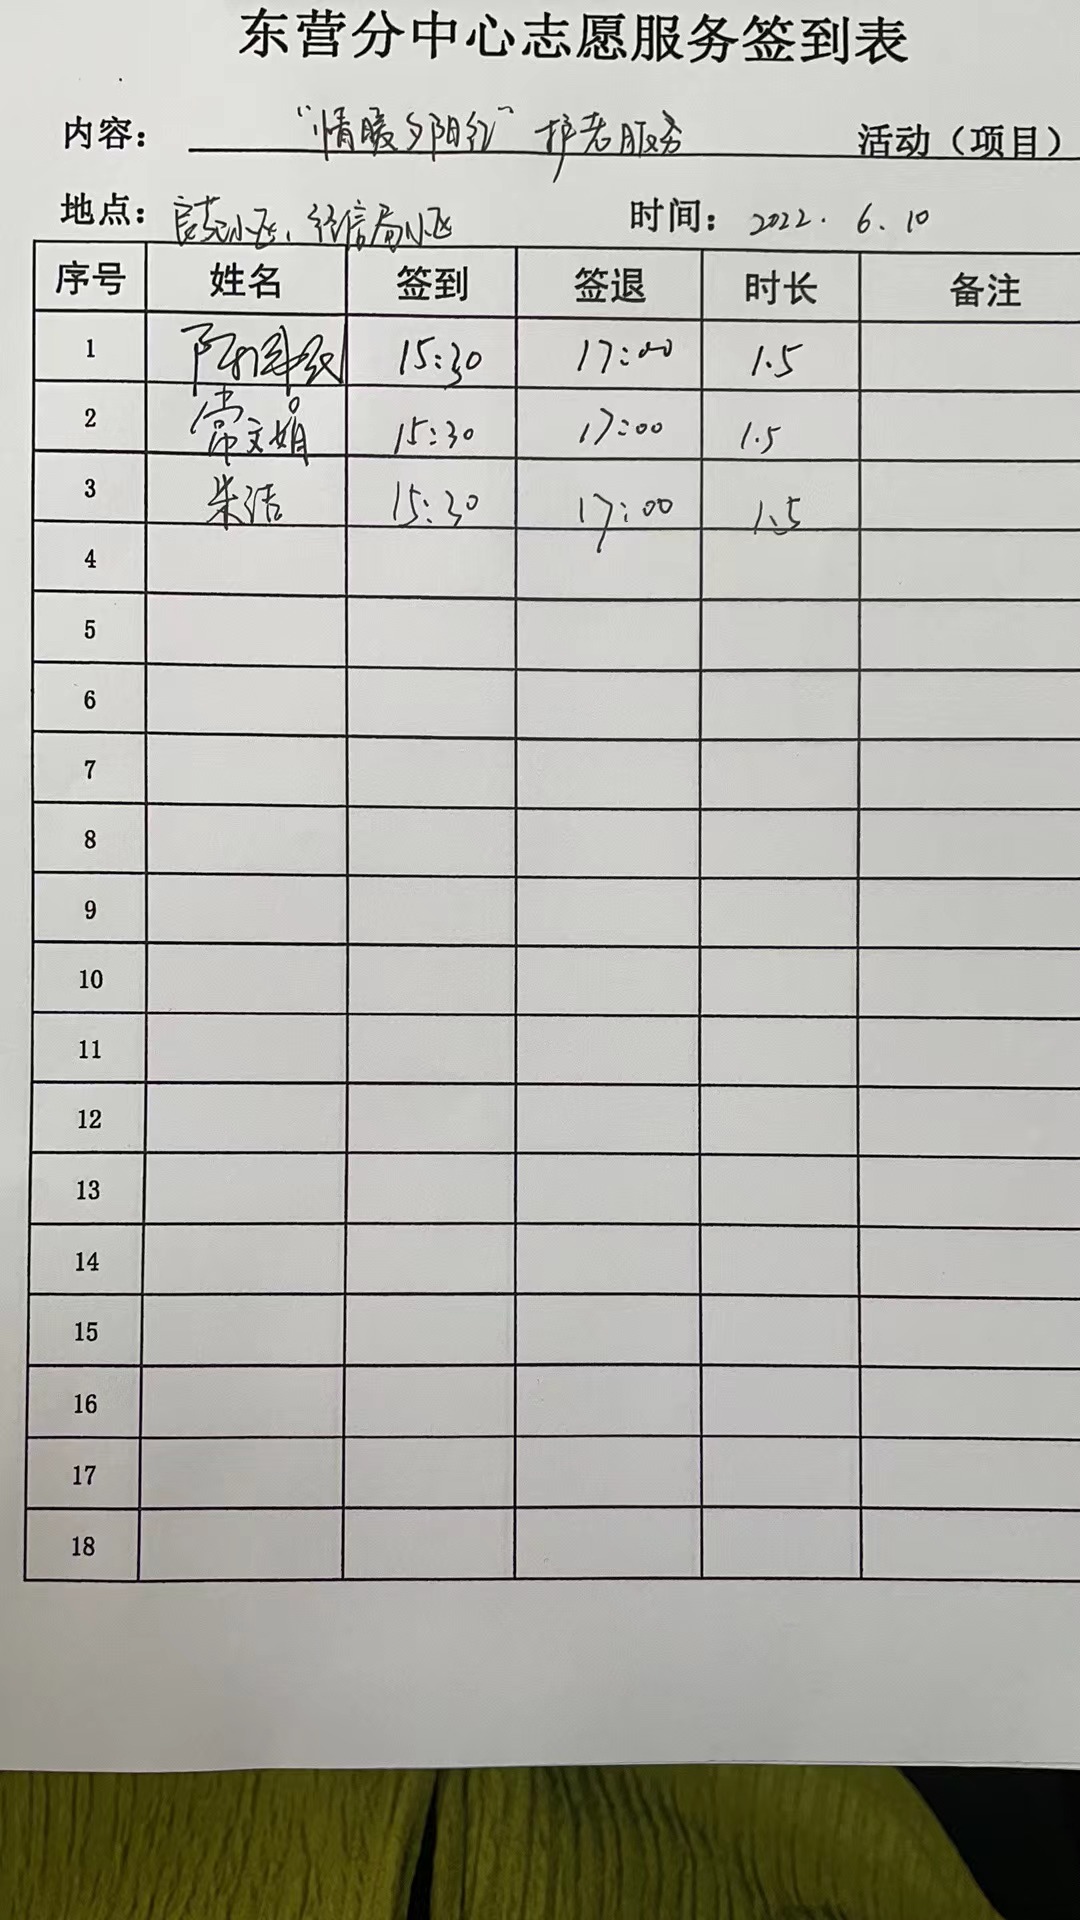 东营分中心志愿服务签到表
内容： “情暖夕阳红”护老服务 活动（项目）
地点： 小区、经信局小区 时间：2022.6.10
序号 姓名 签到 签退 时长 备注
1 15:30 17:00 1.5
2 常文娟 15:30 17:00 1.5
3 朱洁 15:30 17:00 1.5
4
5
6
7
8
9
10
11
12
13
14
15
16
17
18